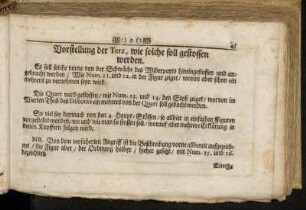 ):( o ):(
41
Vorstellung der Terz, wie solche soll gestossen
werden.
Es soll solche vorne von der Schwäche des Widerparts hineingestossen und an-
gebracht werden / Wie Num. 11. und 12. in der Figur zeiget / wovon aber schon ein
mehrers zu vernehmen seyn wird.
Die Quart wird gestossen / wie Num. 12. und 14. den Stoß zeiget / worvon im
Vierten Theil des Discours ein mehrers von der Quart soll gedacht werden.
So viel sey hiermit von der 4. Haupt-Stössen / so allhier in einfachen Figuren
vorgestellet worden / wo und wie man sie stossen soll / worauf aber mehrere Erklärung in
denen Kupffern folgen wird.
NB. Von dem versicherten Angriff ist die Beschreibung vorne allbereit aufgezeich-
net / die Figur aber / der Ordnung halber / hieher gesetzt / mit Num. 15. und 16.
bezeichnet.